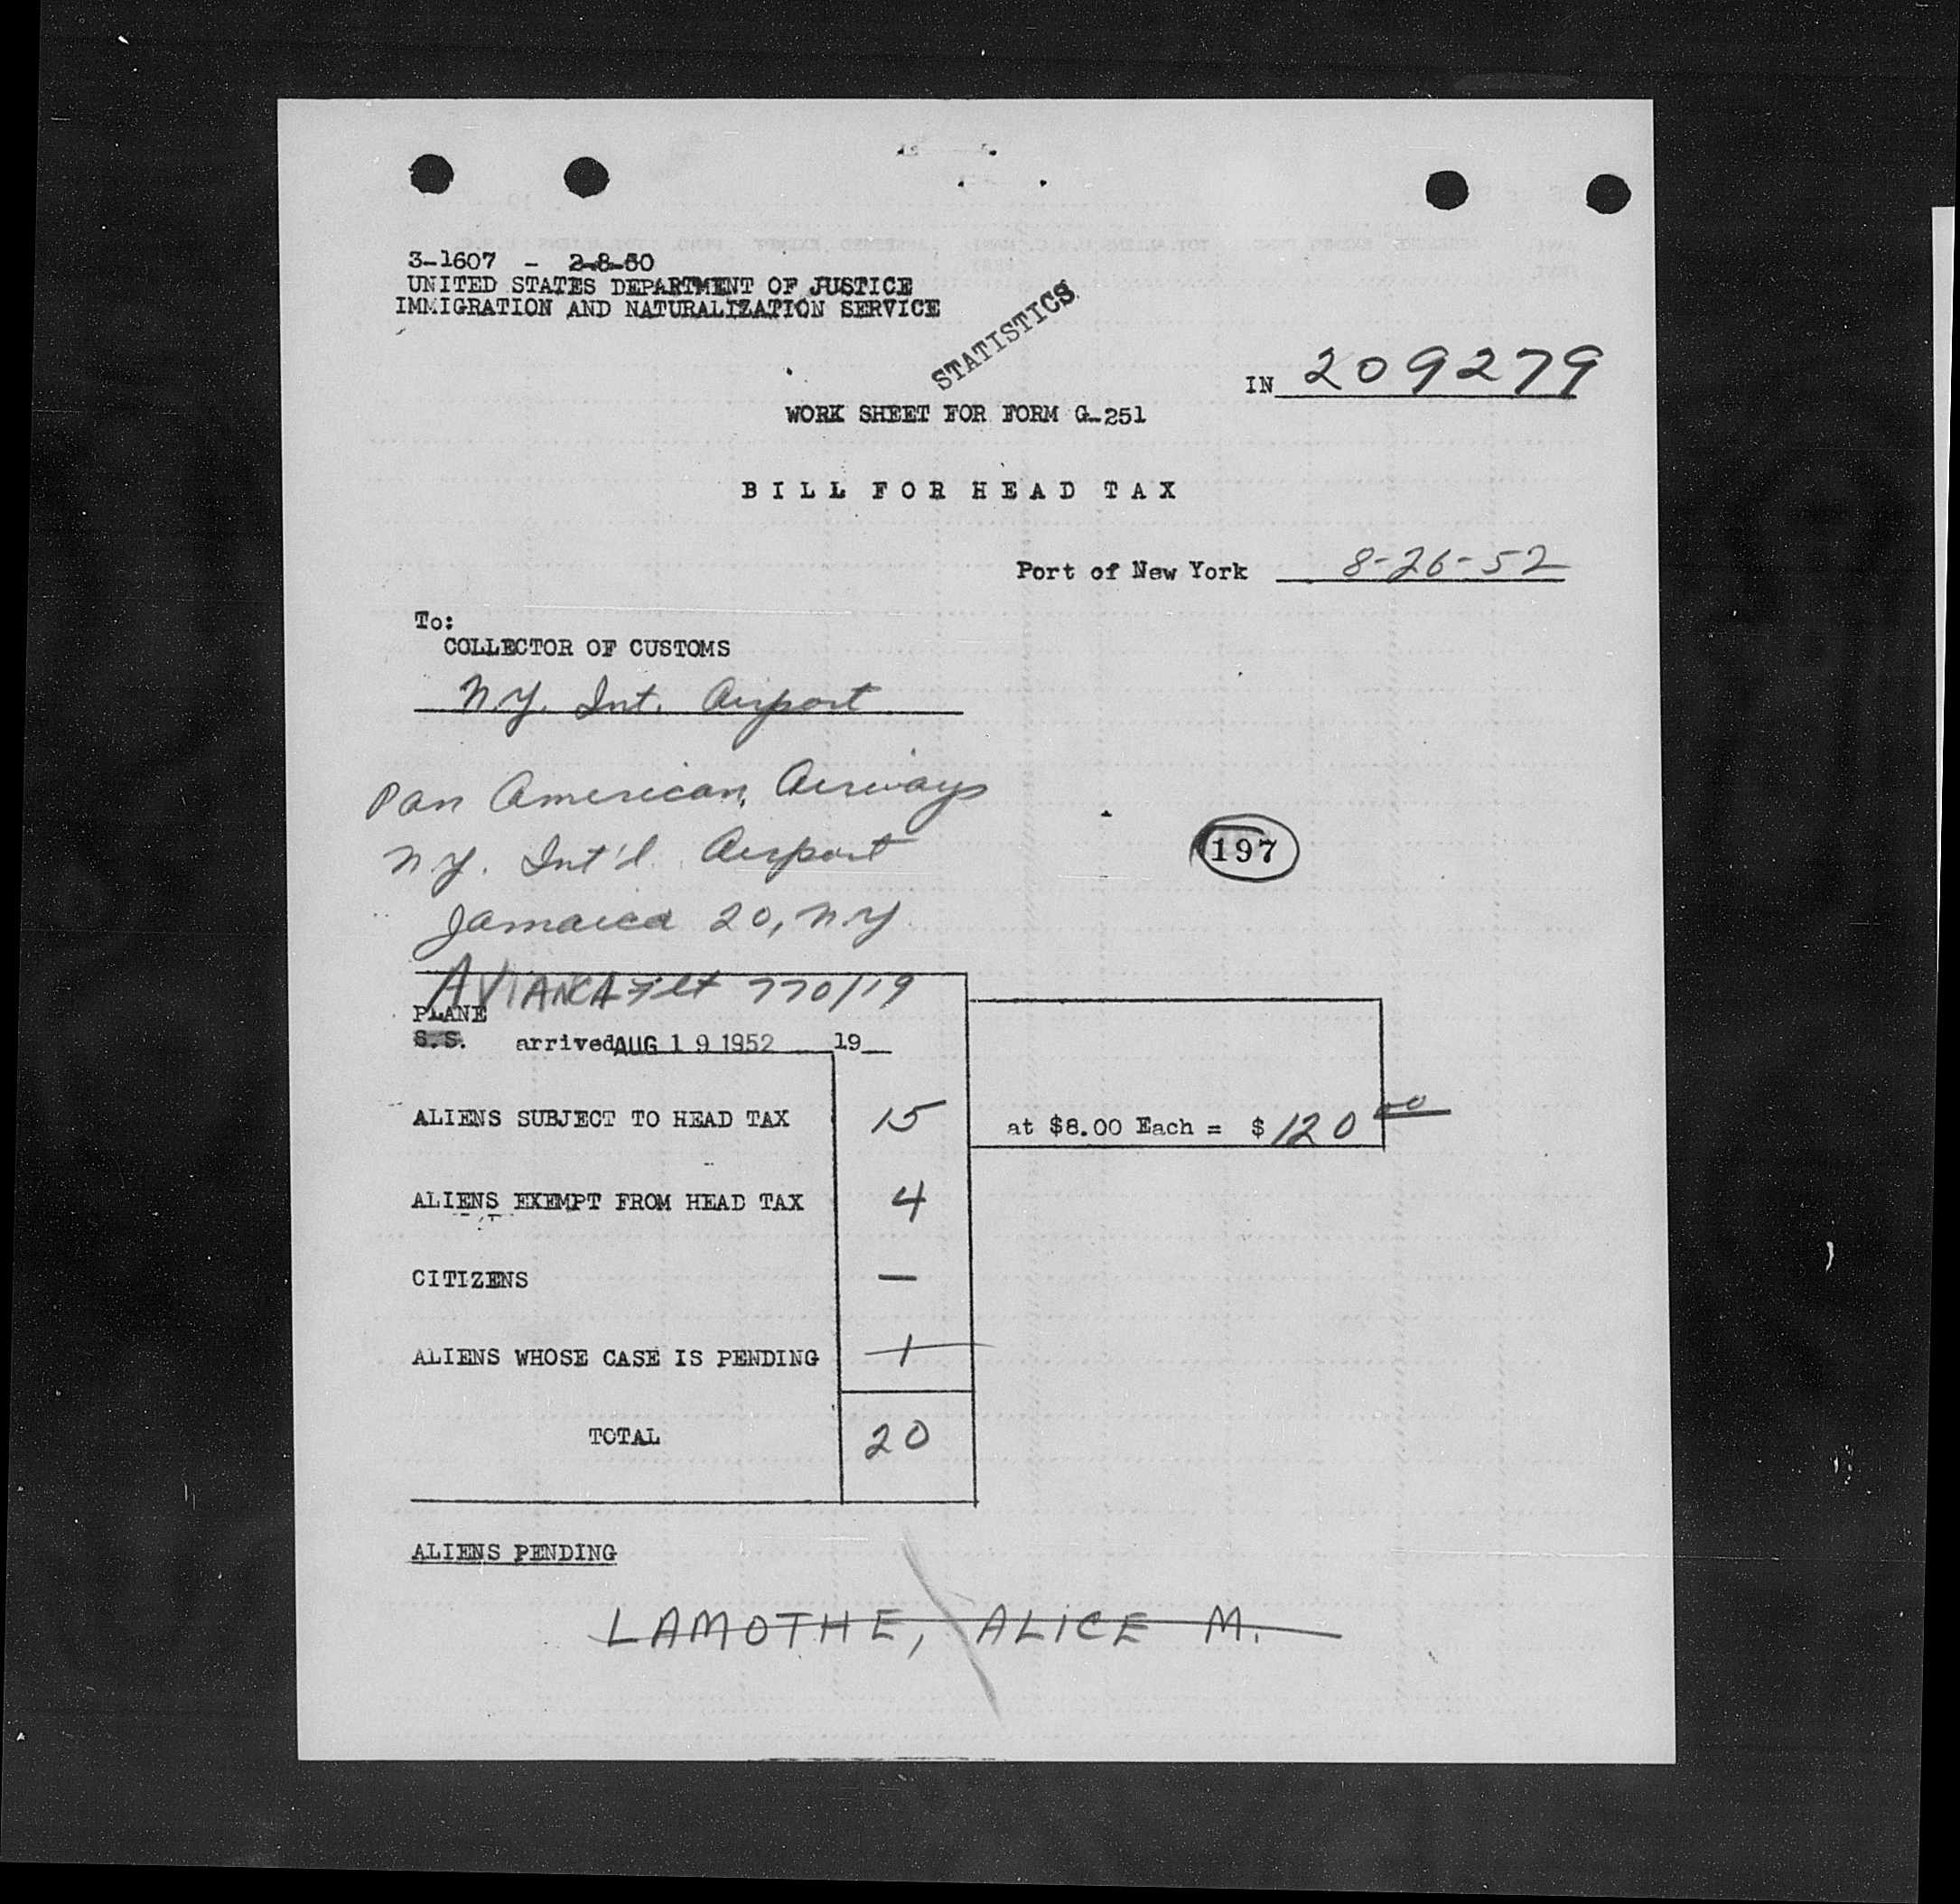 3-1607 - 2-8-50
UNITED STATES DEPARTMENT OF JUSTICE
IMMIGRATION AND NATURALIZATION SERVICE
STATISTICS
IN 209279
WORK SHEET FOR FORM G-251
BILL FOR HEAD TAX
Port of New York 8-26-52
To:
COLLECTOR OF CUSTOMS
N.Y. Int. Airport
Pan American Airways
N.Y. Int'l Airport
Jamaica 20, N.Y.
197
AVIANCA Flt 770/19
PLANE
S.S. arrived AUG 19 1952 19
ALIENS SUBJECT TO HEAD TAX 15 at $8.00 Each = $120 00
ALIENS EXEMPT FROM HEAD TAX 4
CITIZENS —
ALIENS WHOSE CASE IS PENDING 1
TOTAL 20
ALIENS PENDING
LAMOTHE, ALICE M.